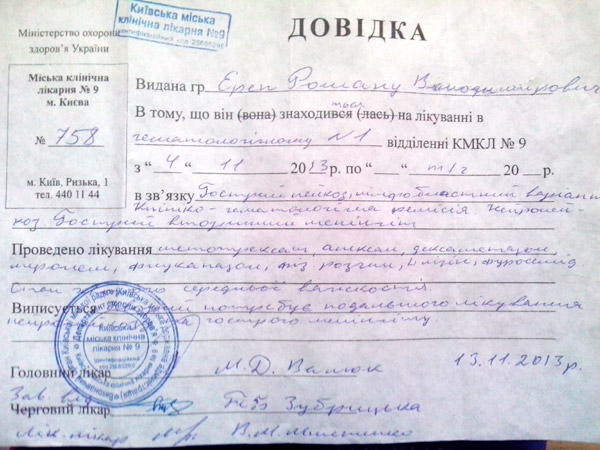 Київська міська
клінічна лікарня №9
ідентифікаційний код 25680295
ДОВІДКА
Міністерство охорони
здоров'я України
Міська клінічна
лікарня № 9
м. Києва
№ 758
м. Київ, Ризька, 1
тел. 440 11 44
Видана гр. Ереп Роману Володимировичу
В тому, що він (вона) знаходився (лась) на лікуванні в
гематологічному №1 відділенні КМКЛ № 9
з “ 4 ” 11 2013 р. по “ ” т/г 20 р.
в зв'язку Гострий лейкоз, лімфобластний варіант
Клініко-гематологічна ремісія Нейролей-
коз Гострий вторинний менінгіт
Проведено лікування метотрексат, дексаметазон,
флуконазол, фіз. розчин, фуросемід
Стан середньої важкості.
Виписується потребує подальшого лікування
гострого менінгіту
Київська
міська клінічна
лікарня № 9
Головний лікар М.Д. 13.11.2013р.
Зав. від
Черговий лікар Зубрицька
Лік. лікар В.М.